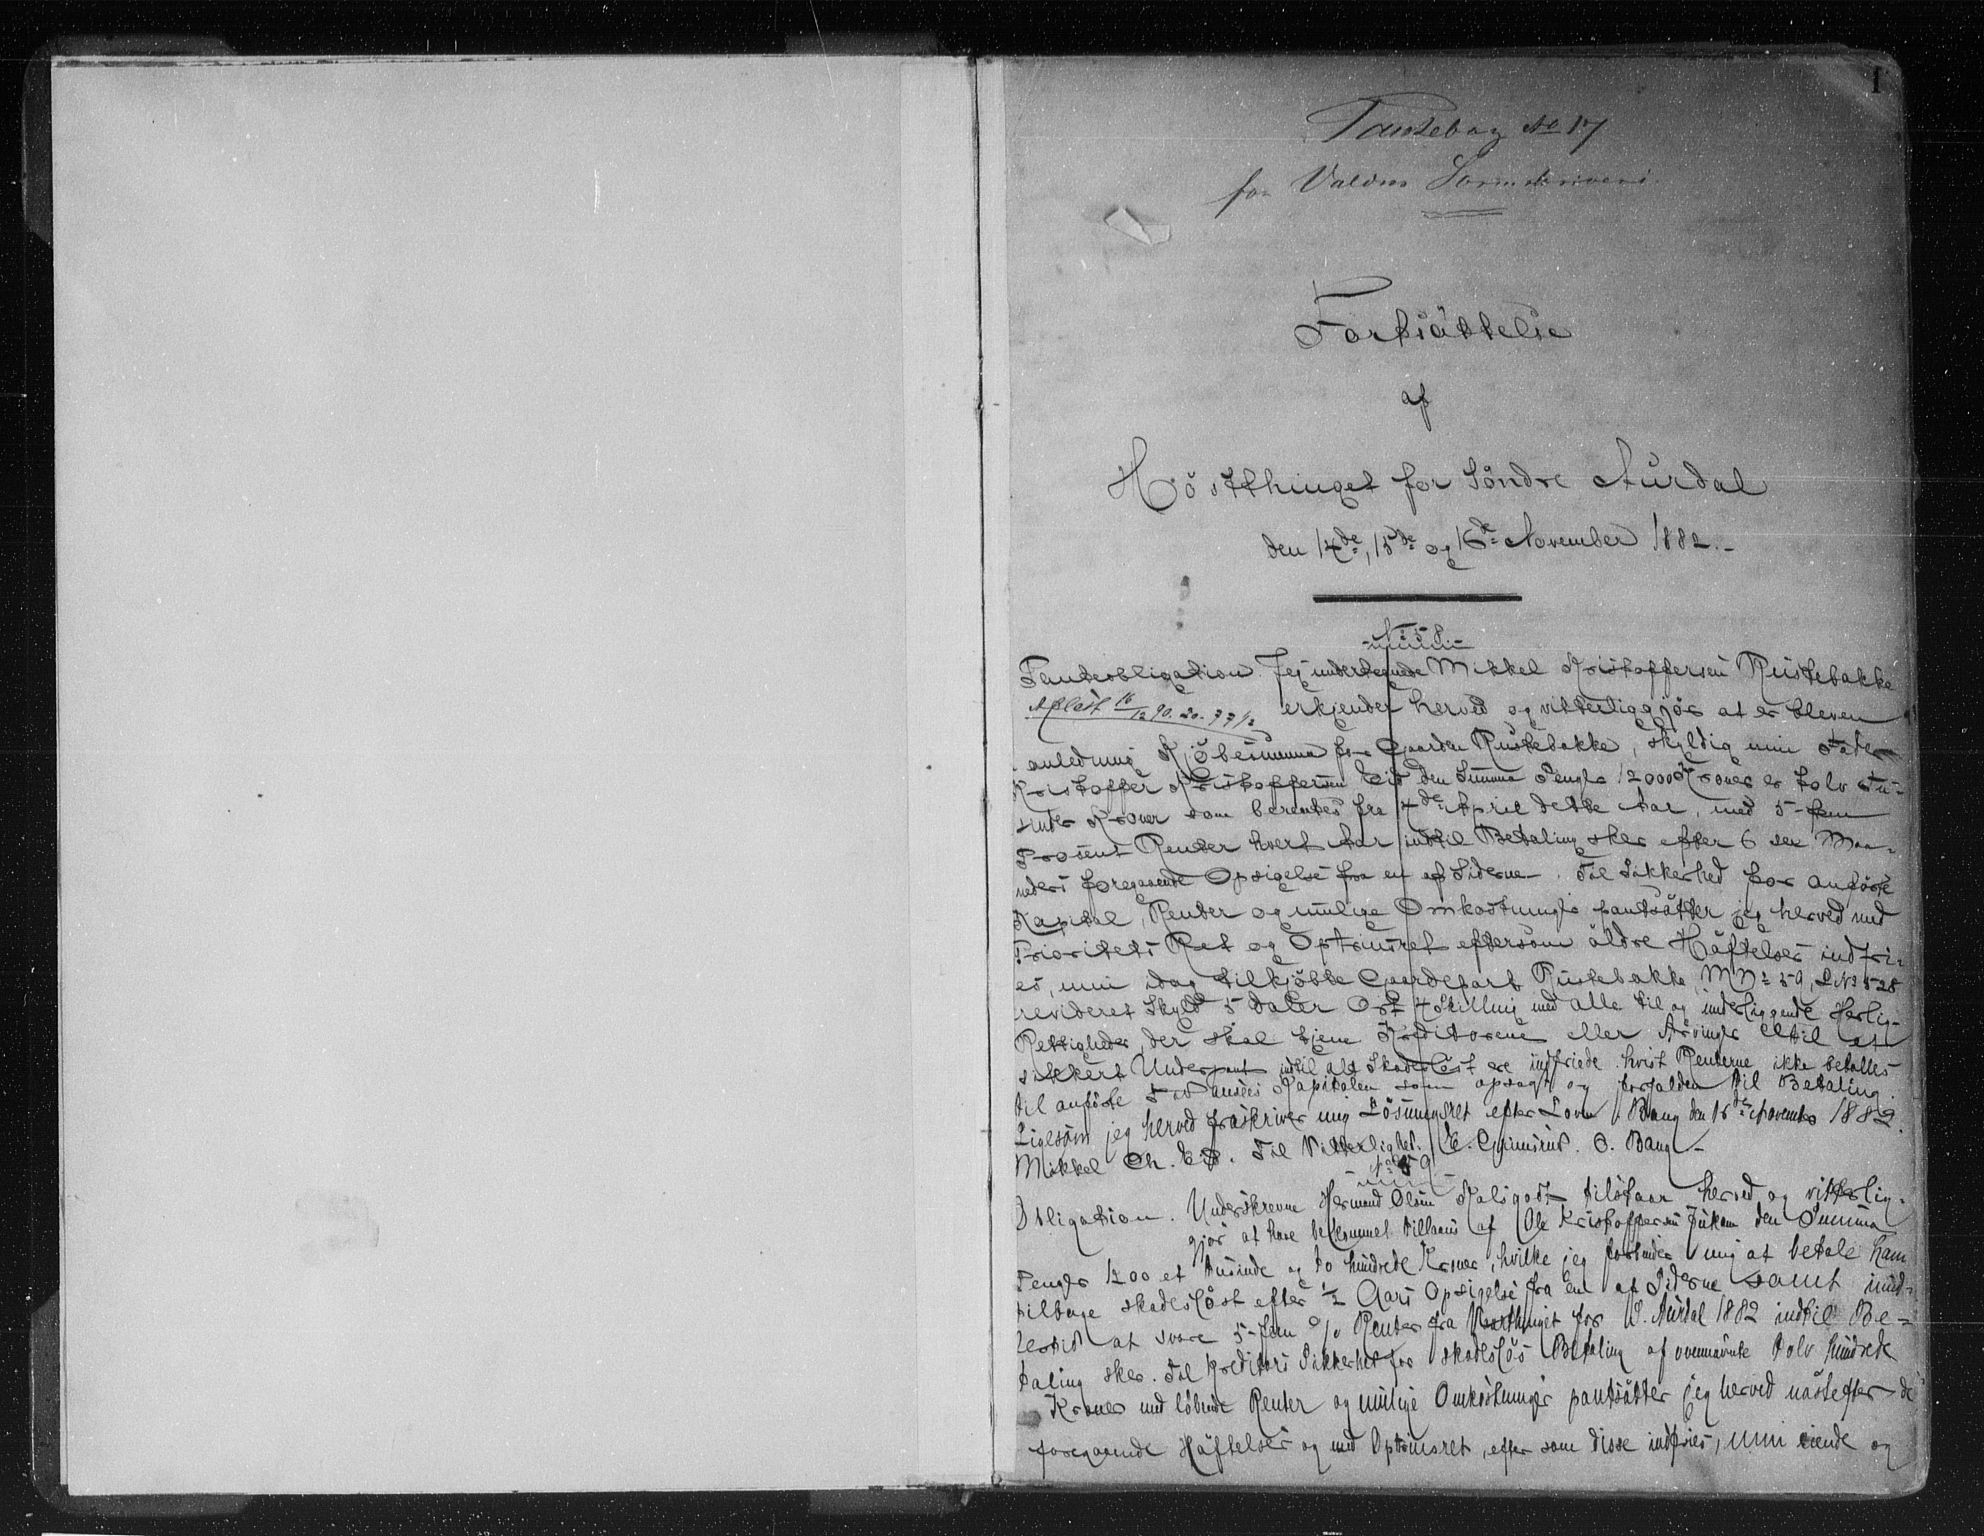 1
Pantebog No 17
for Valdres Sorenskriveri
Fortsättelse
af
Høstthinget for Söndre Aurdal
den 14de, 15de og 16de November 1882.-
No 58.
Panteobligation. Jeg undertegnede Mikkel Kristoffersen Rustebakke
Aflöst 16/12 90. 20. 77 1/2 erkjender herved og vitterliggjör at er bleven
anledning Kjöbesumma for Gaarden Rustebakke, skyldig min Fader
Kristoffer Kristoffersen Eid den Summa Penge 12000 Kroner er tolv Tu-
sinde Kroner som berentes fra 14de April dette Aar, med 5-fem
Prosent Renter hvert Aar indtil Betaling sker efter 6 sex Maa-
neders foregaaende Opsigelse fra en af Siderne. Til Sikkerhed for anförte
Kapital, Renter og mulige Omkostninger pantsätter jeg herved med
Prioritets Ret og Optrinsret eftersom äldre Häftelser indfri-
es, min idag tilkjöbte Gaardepart Rustebakke, M No 59, L No 528
revideret Skyld 5 Daler Ort 4 Skilling med alle til og underliggende Herlig-
Rettigheder, der skal tjene Kreditorene eller Arvinger til et
sikkert Underpant indtil alt Skadeslöst er indfriede. hvist Renterne ikke betalles
til anförte Tid ansees Kapitalen som opsagt og forfalden til Betaling.
Ligesom jeg herved fraskriver mig Lösningsret efter Loven. Bang den 15de November 1882.
Mikkel Ch. Eid. Til Vitterlighet. E. O. Bang-
No 59
Obligation. Underskrevne Hermand Olsen Kalsgodt tilstaar herved og vitterlig-
gjör at have bekommet tillaans af Ole Kristoffersen Jukam den Summa
Penge 1200 et tusinde og to hundrede Kroner, hvilke jeg forbinder mig at betale ham
tilbage skadeslöst efter 1/2 Aars Opsigelse fra en af Siderne samt imid-
lertid at svare 5-fem % Renter fra Høstthinget for S. Aurdal 1882 indtil Be-
taling sker. Til Kreditors Sikkerhet for skadeslös Betaling af ovennävnte tolv hundrede
Kroner med löbende Renter og mulige Omkostninger pantsätter jeg herved näst efter de
foregaaende Häftelser og med Optrinsret, efter som disse indfries, min eiende og